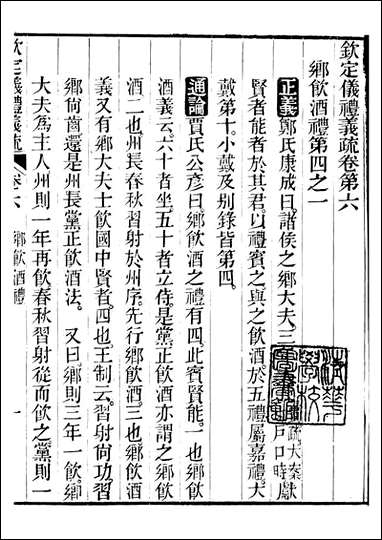 欽定儀禮義疏卷第六
鄉飲酒禮第四之一
正義鄭氏康成曰諸侯之鄉大夫三
賢者能者於其君以禮賓之與之飲酒於五禮屬嘉禮大
戴第十小戴及別錄皆第四
通論賈氏公彥曰鄉飲酒之禮有四此賓賢能一也鄉飲
酒義云六十者坐五十者立侍是黨正飲酒亦謂之鄉飲
酒二也州長春秋習射於州序先行鄉飲酒三也鄉飲酒
義又有鄉大夫士飲國中賢者四也王制云習射尚功習
鄉尚齒還是州長黨正飲酒法 又曰鄉則三年一飲鄉
大夫為主人州則一年再飲春秋習射從而飲之黨則一
欽定儀禮義疏 卷六 鄉飲酒禮 一